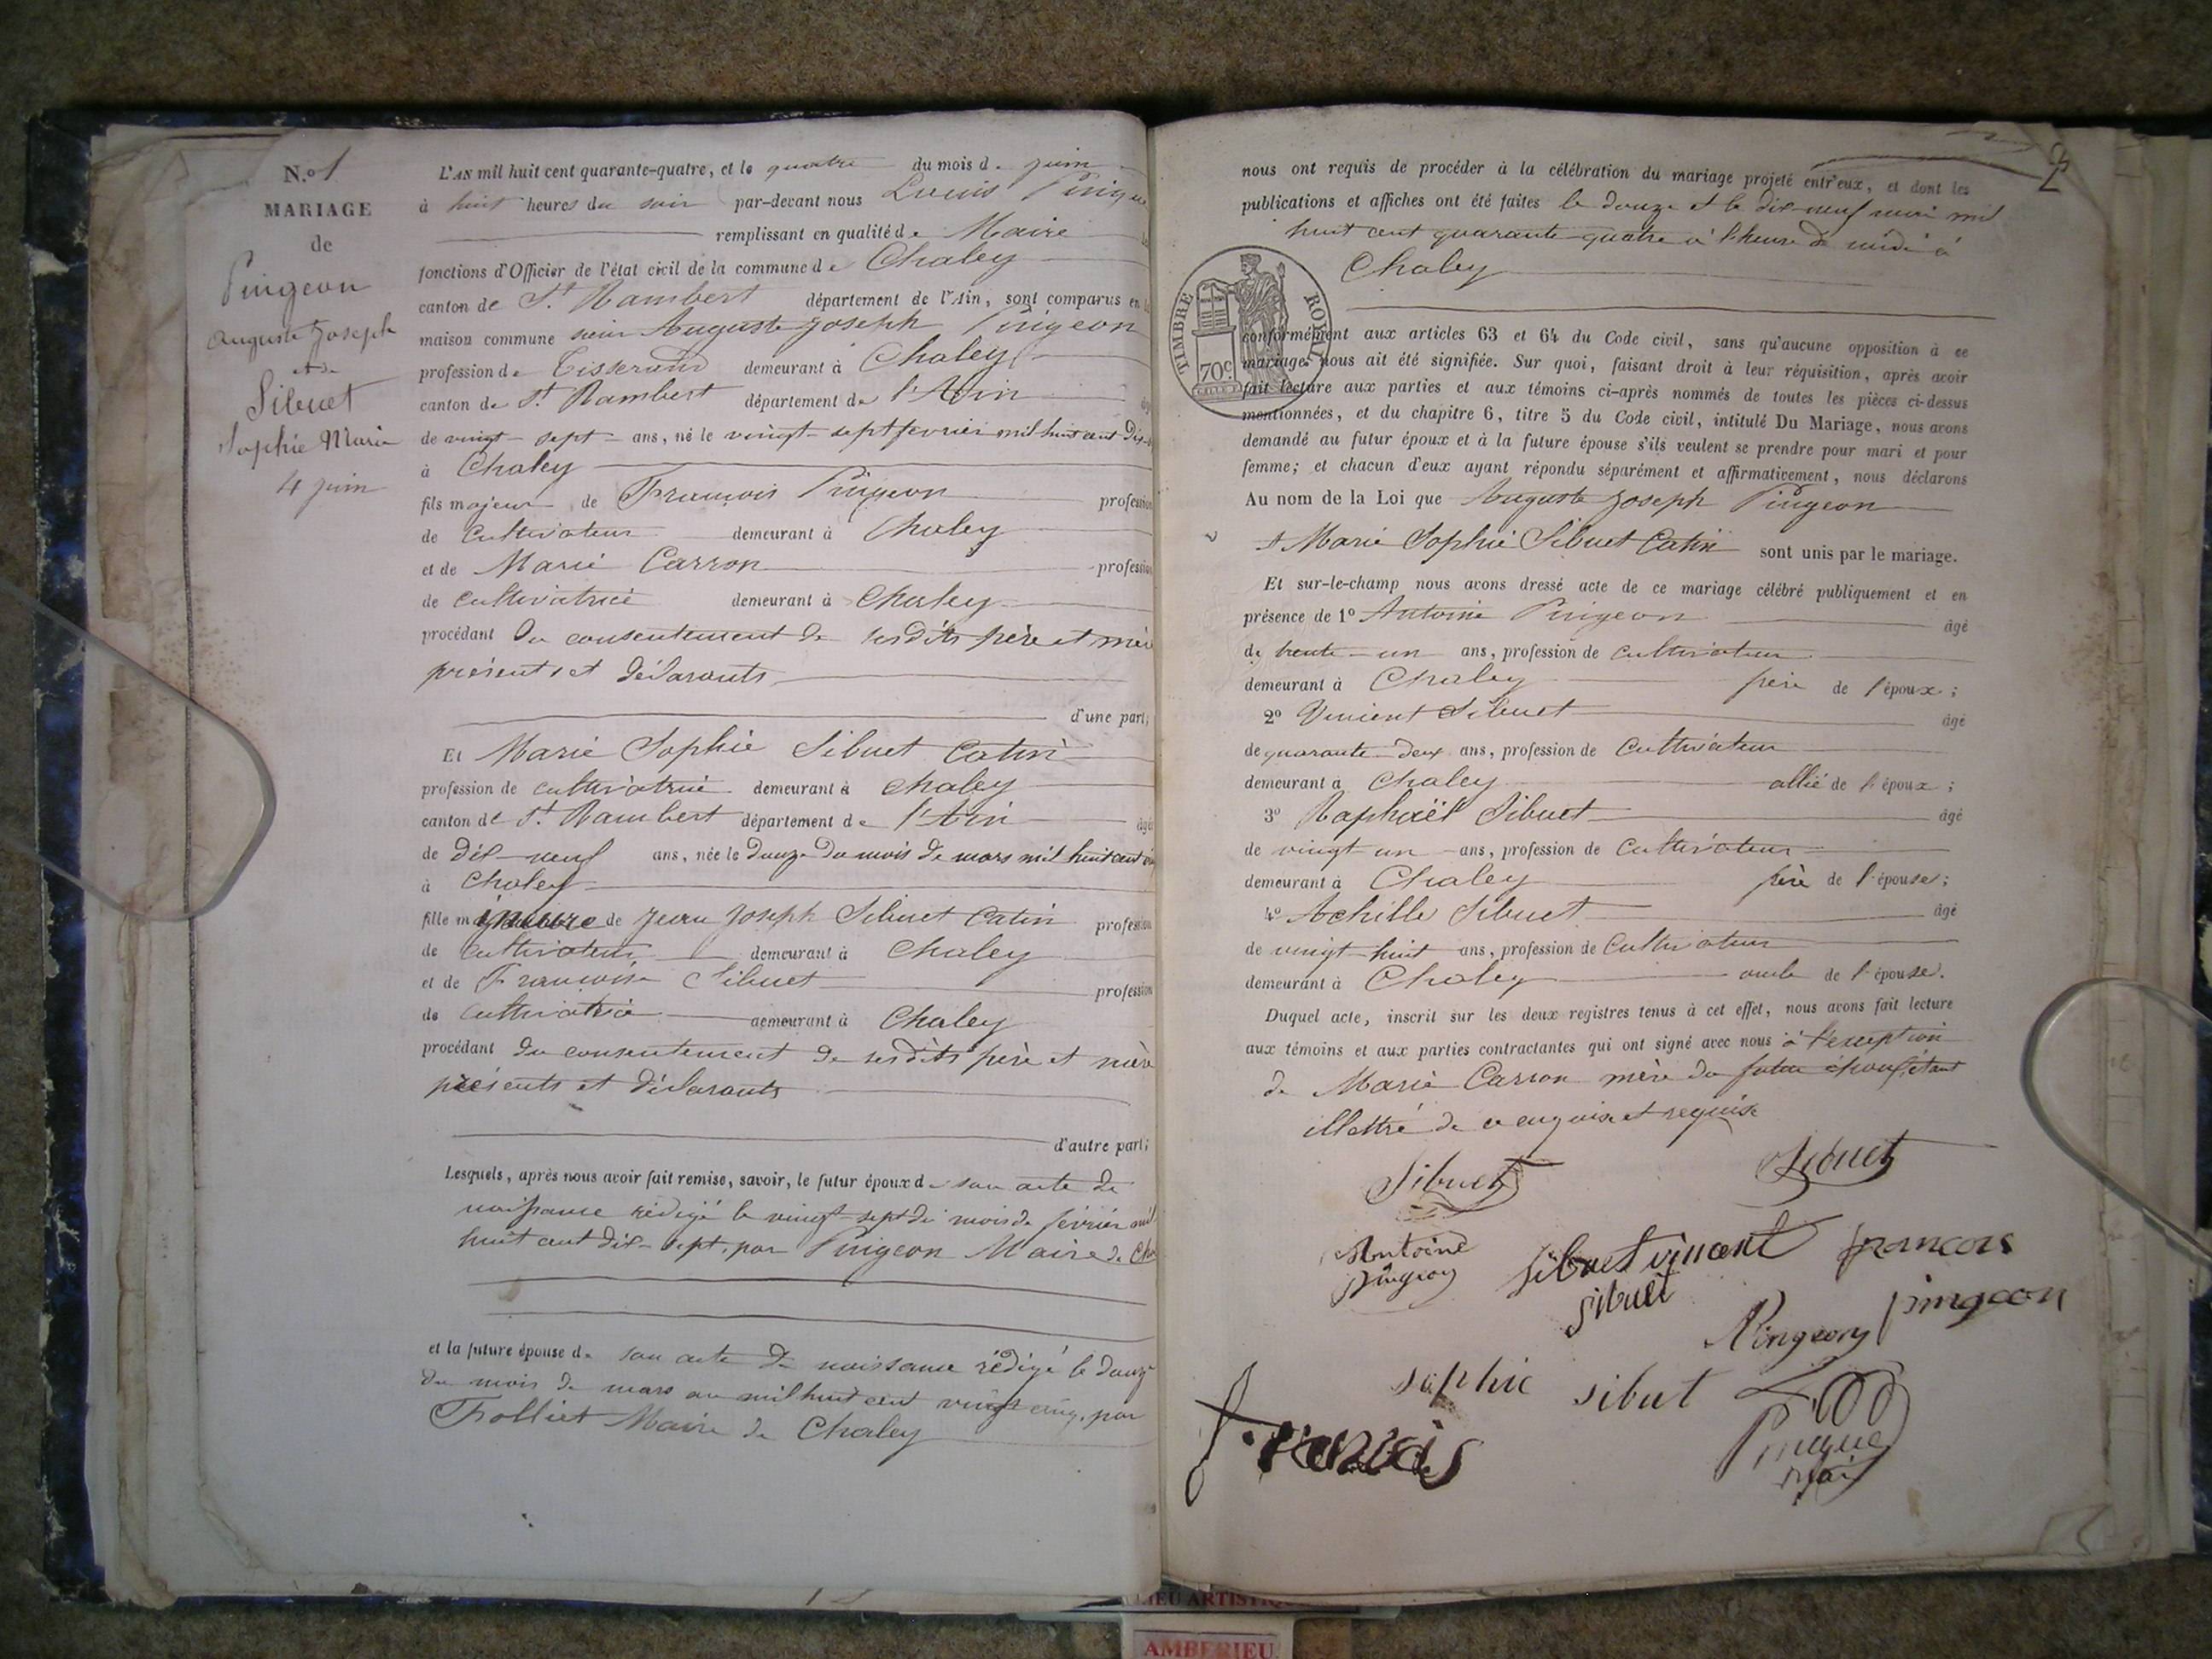 N.º 1
MARIAGE
de
Pingeon
Auguste Joseph
et de
Sibuet
Sophie Marie
4 juin
L'AN mil huit cent quarante-quatre, et le quatre du mois de juin
à huit heures du soir par-devant nous Louis Pingeon
remplissant en qualité de Maire les
fonctions d'Officier de l'état civil de la commune de Chaley
canton de St Rambert département de l'Ain, sont comparus en la
maison commune sieur Auguste Joseph Pingeon
profession de Tisserand demeurant à Chaley
canton de St Rambert département de l'Ain âgé
de vingt-sept ans, né le vingt-sept février mil huit cent dix-
à Chaley
fils majeur de François Pingeon profession
de Cultivateur demeurant à Chaley
et de Marie Carron profession
de cultivatrice demeurant à Chaley
procédant du consentement de ses dits père et mère
présents et déclarants
d'une part;
Et Marie Sophie Sibuet Catin
profession de cultivatrice demeurant à Chaley
canton de St Rambert département de l'Ain âgée
de dix-neuf ans, née le douze du mois de mars mil huit cent
à Chaley
fille mineure de Jean Joseph Sibuet Catin profession
de cultivateur demeurant à Chaley
et de Françoise Sibuet profession
de cultivatrice demeurant à Chaley
procédant du consentement de ses dits père et mère
présents et déclarants
d'autre part;
Lesquels, après nous avoir fait remise, savoir, le futur époux de son acte de
naissance rédigé le vingt-sept du mois de février mil
huit cent dix-sept, par Pingeon Maire de Ch
et la future épouse de son acte de naissance rédigé le douze
du mois de mars an mil huit cent vingt cinq, par
Folliet Maire de Chaley
2
nous ont requis de procéder à la célébration du mariage projeté entr'eux, et dont les
publications et affiches ont été faites le douze et le dix-neuf mai mil
huit cent quarante-quatre à l'heure de midi à
Chaley
TIMBRE ROYAL
70c
conformément aux articles 63 et 64 du Code civil, sans qu'aucune opposition à ce
mariage nous ait été signifiée. Sur quoi, faisant droit à leur réquisition, après avoir
fait lecture aux parties et aux témoins ci-après nommés de toutes les pièces ci-dessus
mentionnées, et du chapitre 6, titre 5 du Code civil, intitulé Du Mariage, nous avons
demandé au futur époux et à la future épouse s'ils veulent se prendre pour mari et pour
femme; et chacun d'eux ayant répondu séparément et affirmativement, nous déclarons
Au nom de la Loi que Auguste Joseph Pingeon
et Marie Sophie Sibuet Catin sont unis par le mariage.
Et sur-le-champ nous avons dressé acte de ce mariage célébré publiquement et en
présence de 1º Antoine Pingeon âgé
de trente-un ans, profession de cultivateur
demeurant à Chaley frère de l'époux;
2º Vincent Sibuet âgé
de quarante-deux ans, profession de Cultivateur
demeurant à Chaley allié de l'époux;
3º Raphaël Sibuet âgé
de vingt-un ans, profession de Cultivateur
demeurant à Chaley frère de l'épouse;
4º Achille Sibuet âgé
de vingt-huit ans, profession de Cultivateur
demeurant à Chaley oncle de l'épouse.
Duquel acte, inscrit sur les deux registres tenus à cet effet, nous avons fait lecture
aux témoins et aux parties contractantes qui ont signé avec nous à l'exception
de Marie Carron mère du futur époux, étant
illettré de ce enquise et requise
Sibuet Sibuet
Antoine Pingeon
Sibuet vincent
francois pingeon
Sibuet
Pingeon
sophie sibut
francois
Pingeon
maire
AMBERIEU